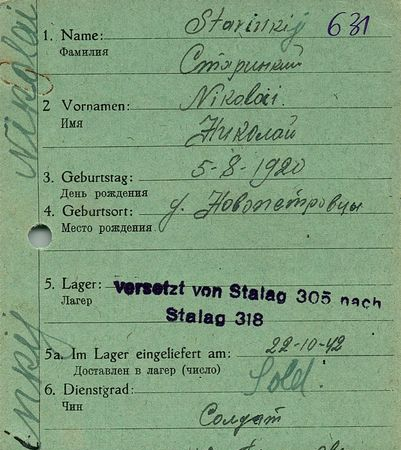 631
1. Name: Starinkij
Фамилия Старинкий
2 Vornamen: Nikolai.
Имя Николай
3. Geburtstag: 5-8-1920
День рождения
4. Geburtsort: у. Новопетровцы
Место рождения
5. Lager: Versetzt von Stalag 305 nach
Лагер Stalag 318
5a. Im Lager eingeliefert am: 22-10-42
Доставлен в лагер (число)
6. Dienstgrad: Sold.
Чин Солдат
Nikolai
inkij